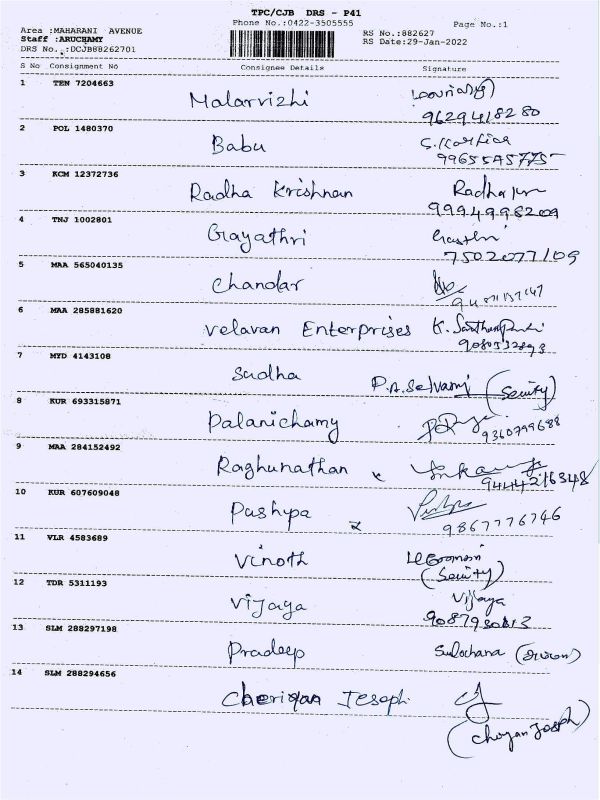 TPC/CJB DRS - P41
Phone No.:0422-3505555
Page No.:1
Area :MAHARANI AVENUE
RS No.:882627
Staff :ARUCHAMY
RS Date:29-Jan-2022
DRS No.:DCJB88262701
S No Consignment No Consignee Details Signature
1 TEN 7204663
Malarvizhi
9629418280
2 POL 1480370
Babu
3 KCM 12372736
Radha Krishnan
9994998209
4 TNJ 1002801
Gayathri
7502077109
5 MAA 565040135
Chandar
6 MAA 285881620
Velavan Enterprises
7 MYD 4143108
Sudha P.A.Selvami
8 KUR 693315871
Palanichamy
9360799688
9 MAA 284152492
Raghunathan x
10 KUR 607609048
Pushpa x
9867776746
11 VLR 4583689
Vinoth
12 TDR 5311193
Vijaya Vijaya
13 SLM 288297198
Pradeep Sulochana
14 SLM 288294656
Cheriyan Joseph